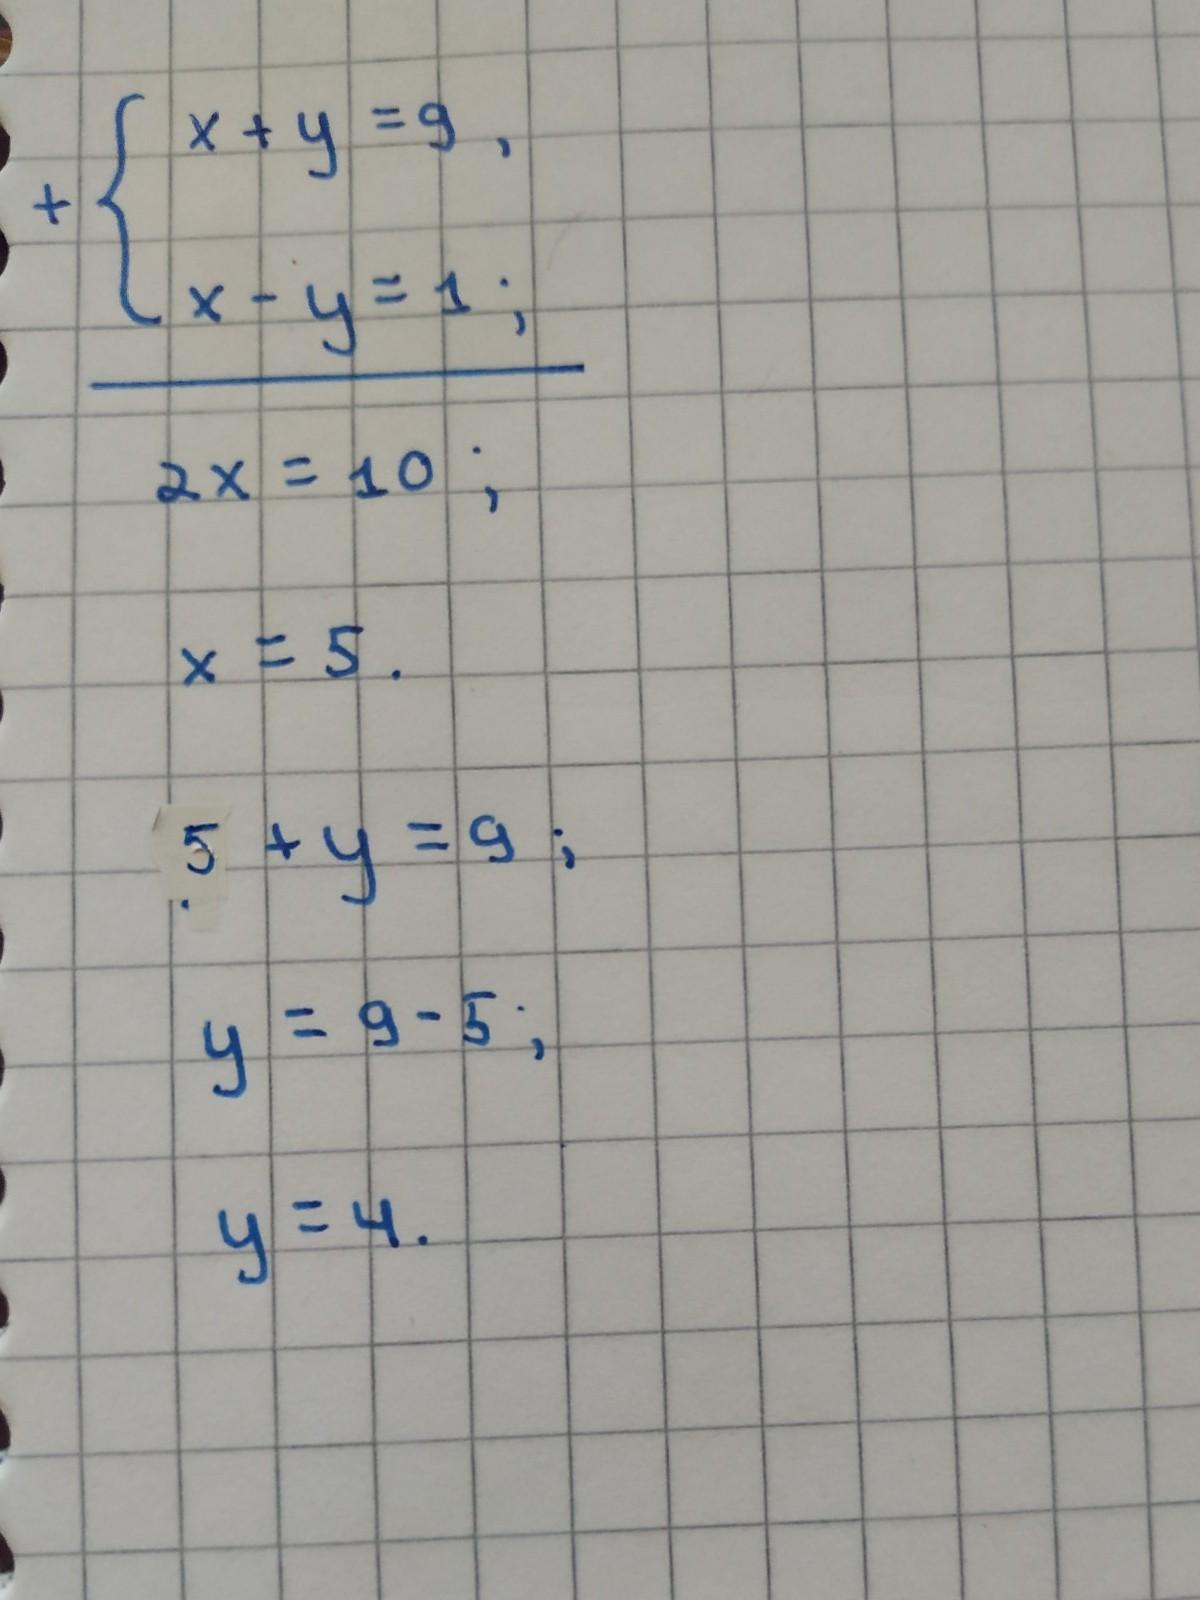 + { x + y = 9 ,
x - y = 1 ;
2x = 10 ;
x = 5 .
5 + y = 9 ;
y = 9 - 5 ;
y = 4 .